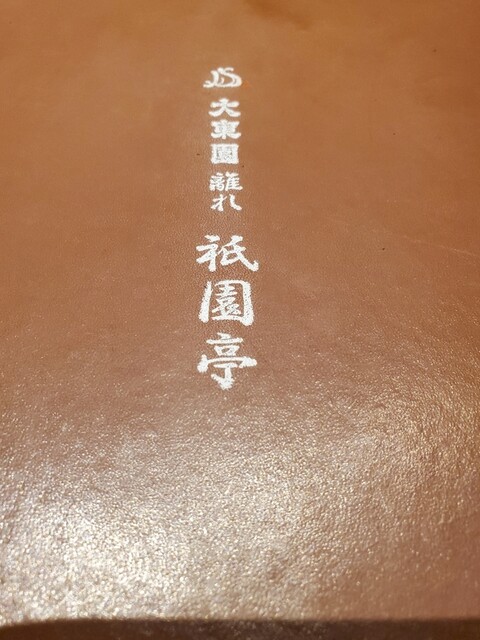 大東園離れ
祇園亭